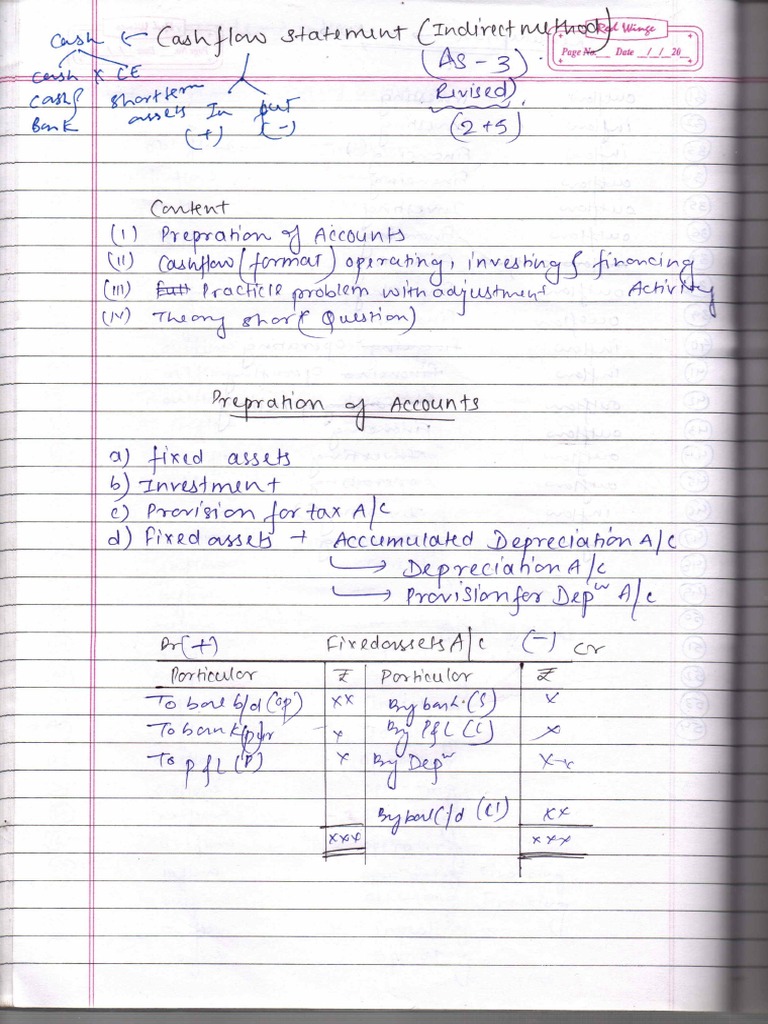 Cash ← Cash flow statement (Indirect method)
Red Winge
Page No. Date __/__/20__
(AS-3).
Cash & CE
Cash & Bank
Short term assets
In (+)
out (-)
Revised
(2+5)
Content
(I) Prepration of Accounts
(II) Cashflow (format) operating, investing & financing
Activity
(III) Full Practicle problem with adjustment
(IV) Theory short (Question)
Prepration of Accounts
a) fixed assets
b) Investment
c) Provision for tax A/c
d) Fixed assets + Accumulated Depreciation A/c
↳ Depreciation A/c
↳ Provision for Depⁿ A/c
Dr (+) Fixed assets A/c (-) Cr
Particular ₹ Particular ₹
To bal b/d (op) xx By bank (S) x
To bank (pur x By P&L (L) x
To P&L (P) x By Depⁿ x-x
By bal C/d (Cl) xx
xxx xxx